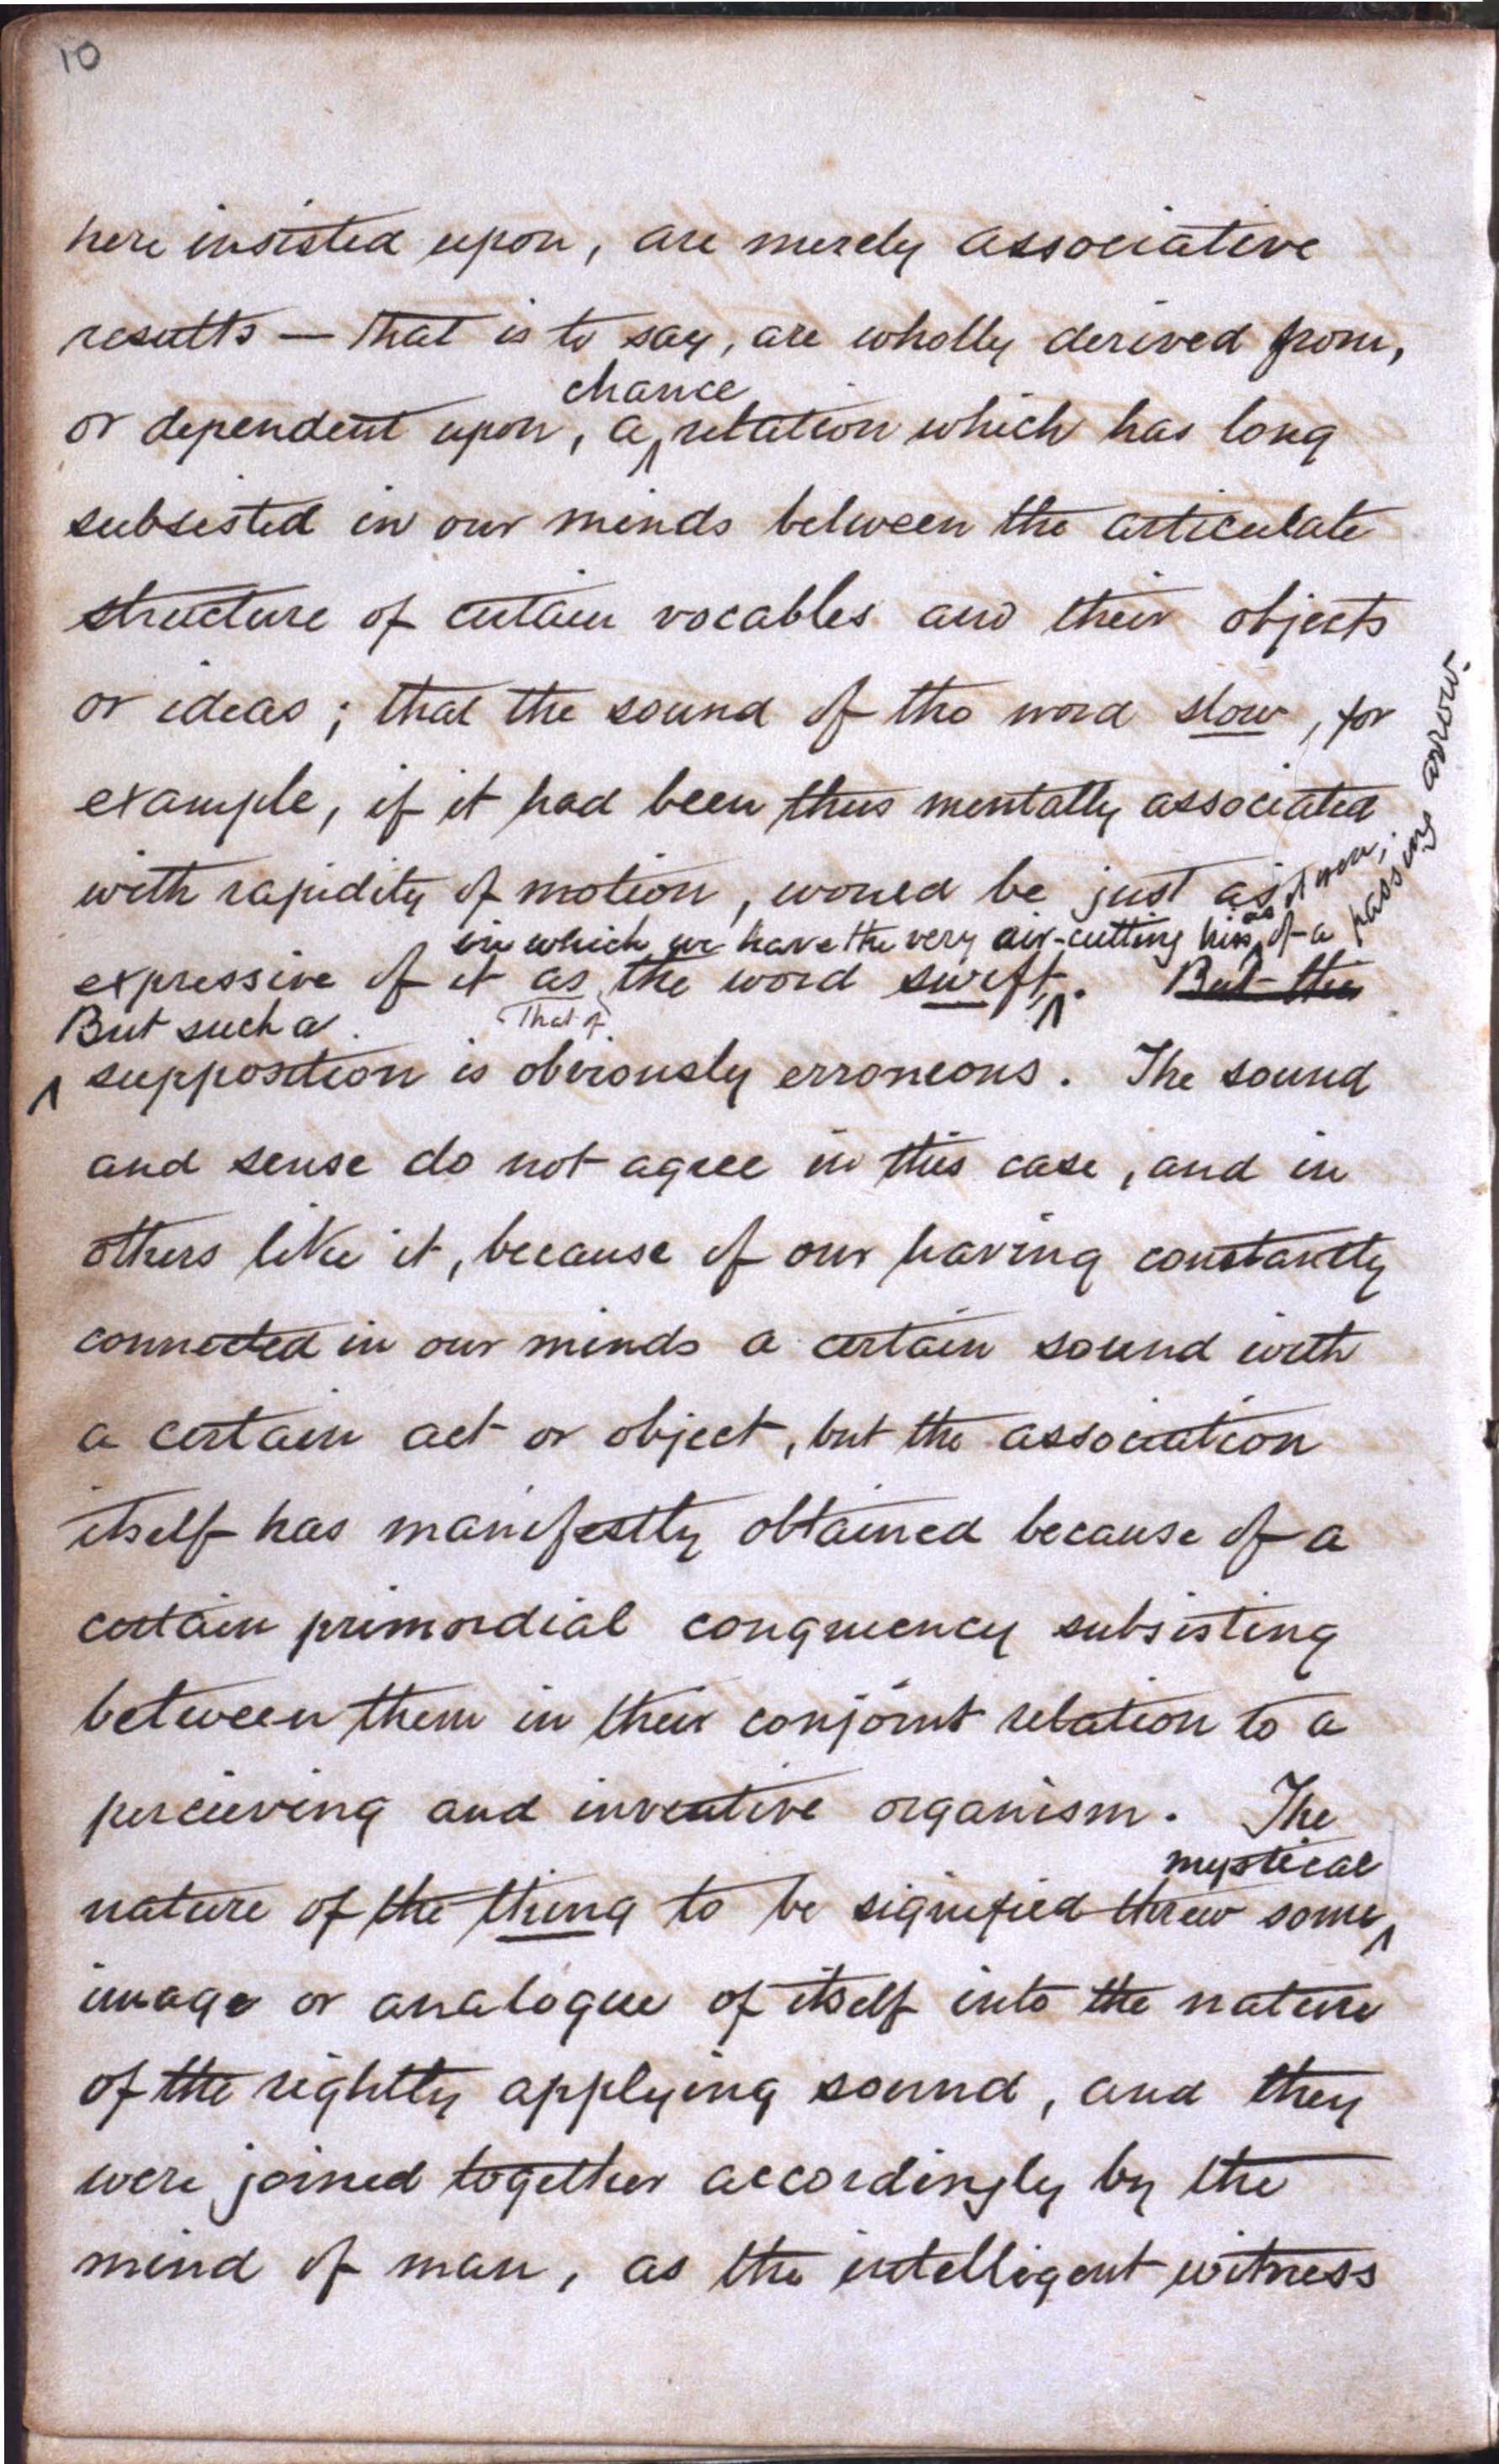 10
here insisted upon, are merely associative
results — that is to say, are wholly derived from,
chance
or dependent upon, a ^ relation which has long
subsisted in our minds between the articulate
structure of certain vocables and their objects
or ideas; that the sound of the word slow, for
example, if it had been thus mentally associated
with rapidity of motion, would be just as
in which we have the very air-cutting hiss, as it were, of a passing arrow.
expressive of it as the word swift ^. But the
But such a
That of
^ supposition is obviously erroneous. The sound
and sense do not agree in this case, and in
others like it, because of our having constantly
connected in our minds a certain sound with
a certain act or object, but the association
itself has manifestly obtained because of a
certain primordial congruency subsisting
between them in their conjoint relation to a
perceiving and inventive organism. The
mystical
nature of the thing to be signified threw some ^
image or analogue of itself into the nature
of the rightly applying sound, and they
were joined together accordingly by the
mind of man, as the intelligent witness